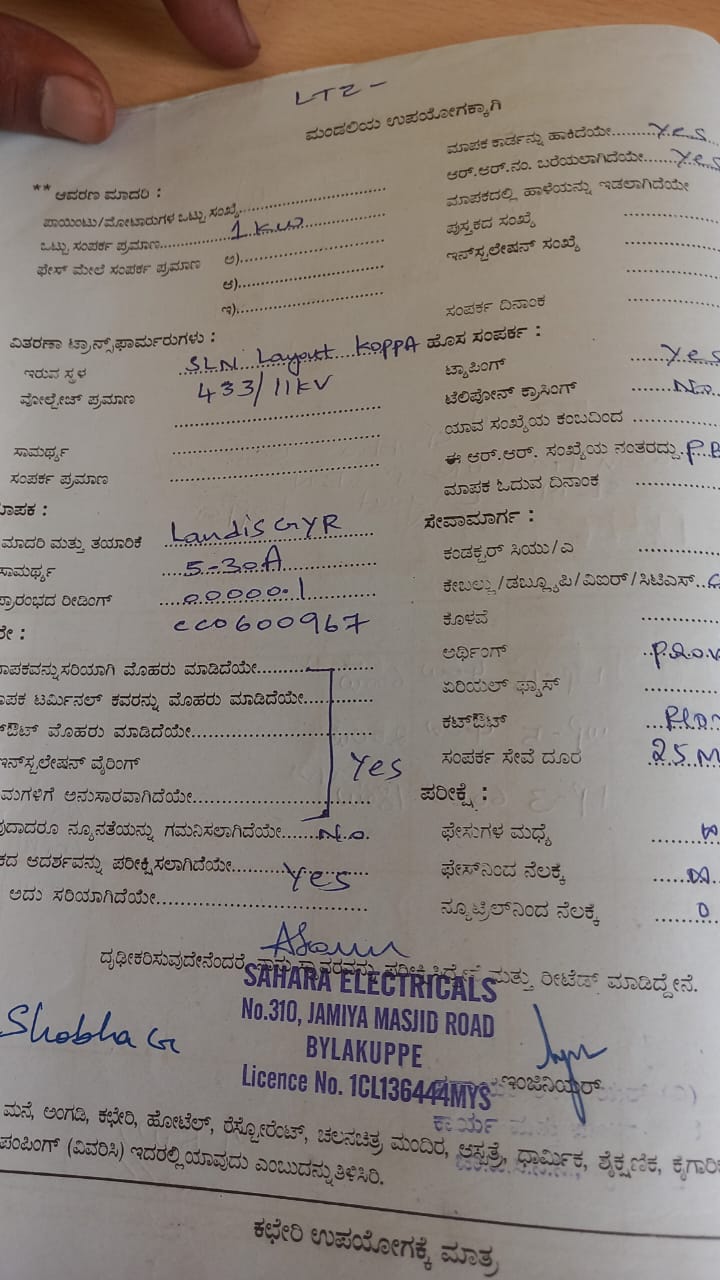 LT2 -
ಮಂಡಲಿಯ ಉಪಯೋಗಕ್ಕಾಗಿ
** ಆವರಣ ಮಾದರಿ :
ಪಾಯಿಂಟು/ಮೋಟಾರುಗಳ ಒಟ್ಟು ಸಂಖ್ಯೆ
ಒಟ್ಟು ಸಂಪರ್ಕ ಪ್ರಮಾಣ 1 KW
ಫೇಸ್ ಮೇಲೆ ಸಂಪರ್ಕ ಪ್ರಮಾಣ ಅ)
ಆ)
ಇ)
ವಿತರಣಾ ಟ್ರಾನ್ಸ್‌ಫಾರ್ಮರುಗಳು :
ಇರುವ ಸ್ಥಳ SLN Layout KOPPA
ವೋಲ್ಟೇಜ್ ಪ್ರಮಾಣ 433/11KV
ಸಾಮರ್ಥ್ಯ
ಸಂಪರ್ಕ ಪ್ರಮಾಣ
ಮಾಪಕ :
ಮಾದರಿ ಮತ್ತು ತಯಾರಿಕೆ Landis GYR
ಸಾಮರ್ಥ್ಯ 5-30A
ಪ್ರಾರಂಭದ ರೀಡಿಂಗ್ 00000.1
ರೇ : CC0600967
ಮಾಪಕವನ್ನು ಸರಿಯಾಗಿ ಮೊಹರು ಮಾಡಿದೆಯೇ
ಮಾಪಕ ಟರ್ಮಿನಲ್ ಕವರನ್ನು ಮೊಹರು ಮಾಡಿದೆಯೇ
ಕಟ್‌ಔಟ್ ಮೊಹರು ಮಾಡಿದೆಯೇ
ಇನ್‌ಸ್ಟಲೇಷನ್ ವೈರಿಂಗ್ Yes
ನಿಯಮಗಳಿಗೆ ಅನುಸಾರವಾಗಿದೆಯೇ
ಯಾವುದಾದರೂ ನ್ಯೂನತೆಯನ್ನು ಗಮನಿಸಲಾಗಿದೆಯೇ No
ಆದರ್ಶವನ್ನು ಪರೀಕ್ಷಿಸಲಾಗಿದೆಯೇ Yes
ಅದು ಸರಿಯಾಗಿದೆಯೇ
ಮಾಪಕ ಕಾರ್ಡನ್ನು ಹಾಕಿದೆಯೇ Yes
ಆರ್.ಆರ್.ನಂ. ಬರೆಯಲಾಗಿದೆಯೇ Yes
ಮಾಪಕದಲ್ಲಿ ಹಾಳೆಯನ್ನು ಇಡಲಾಗಿದೆಯೇ
ಪುಸ್ತಕದ ಸಂಖ್ಯೆ
ಇನ್‌ಸ್ಟಲೇಷನ್ ಸಂಖ್ಯೆ
ಸಂಪರ್ಕ ದಿನಾಂಕ
ಹೊಸ ಸಂಪರ್ಕ :
ಟ್ಯಾಪಿಂಗ್ Yes
ಟೆಲಿಪೋನ್ ಕ್ರಾಸಿಂಗ್ No
ಯಾವ ಸಂಖ್ಯೆಯ ಕಂಬದಿಂದ
ಈ ಆರ್.ಆರ್. ಸಂಖ್ಯೆಯ ನಂತರದ್ದು
ಮಾಪಕ ಓದುವ ದಿನಾಂಕ
ಸೇವಾಮಾರ್ಗ :
ಕಂಡಕ್ಟರ್ ಸಿಯು/ಎ
ಕೇಬಲ್ಲು/ಡಬ್ಲ್ಯೂಪಿ/ವಿಐರ್/ಸಿಟಿಎಸ್
ಕೊಳವೆ
ಅರ್ಥಿಂಗ್
ಏರಿಯಲ್ ಫ್ಯಾಸ್
ಕಟ್‌ಔಟ್
ಸಂಪರ್ಕ ಸೇವೆ ದೂರ 25M
ಪರೀಕ್ಷೆ :
ಫೇಸುಗಳ ಮಧ್ಯೆ
ಫೇಸ್‌ನಿಂದ ನೆಲಕ್ಕೆ
ನ್ಯೂಟ್ರಿಲ್‌ನಿಂದ ನೆಲಕ್ಕೆ 0
ದೃಢೀಕರಿಸುವುದೇನೆಂದರೆ ನಾನು ಸ್ಥಾವರವನ್ನು ಪರೀಕ್ಷಿಸಿದ್ದೇನೆ ಮತ್ತು ರೀಟೆಡ್ ಮಾಡಿದ್ದೇನೆ.
SAHARA ELECTRICALS
No.310, JAMIYA MASJID ROAD
BYLAKUPPE
Licence No. 1CL136444MYS
Shobha G
ಇಂಜಿನಿಯರ್
ಮನೆ, ಅಂಗಡಿ, ಕಛೇರಿ, ಹೋಟೆಲ್, ರೆಸ್ಟೋರೆಂಟ್, ಚಲನಚಿತ್ರ ಮಂದಿರ, ಆಸ್ಪತ್ರೆ, ಧಾರ್ಮಿಕ, ಶೈಕ್ಷಣಿಕ, ಕೃಗಾರಿ
ಪಂಪಿಂಗ್ (ವಿವರಿಸಿ) ಇದರಲ್ಲಿ ಯಾವುದು ಎಂಬುದನ್ನು ತಿಳಿಸಿರಿ.
ಕಛೇರಿ ಉಪಯೋಗಕ್ಕೆ ಮಾತ್ರ